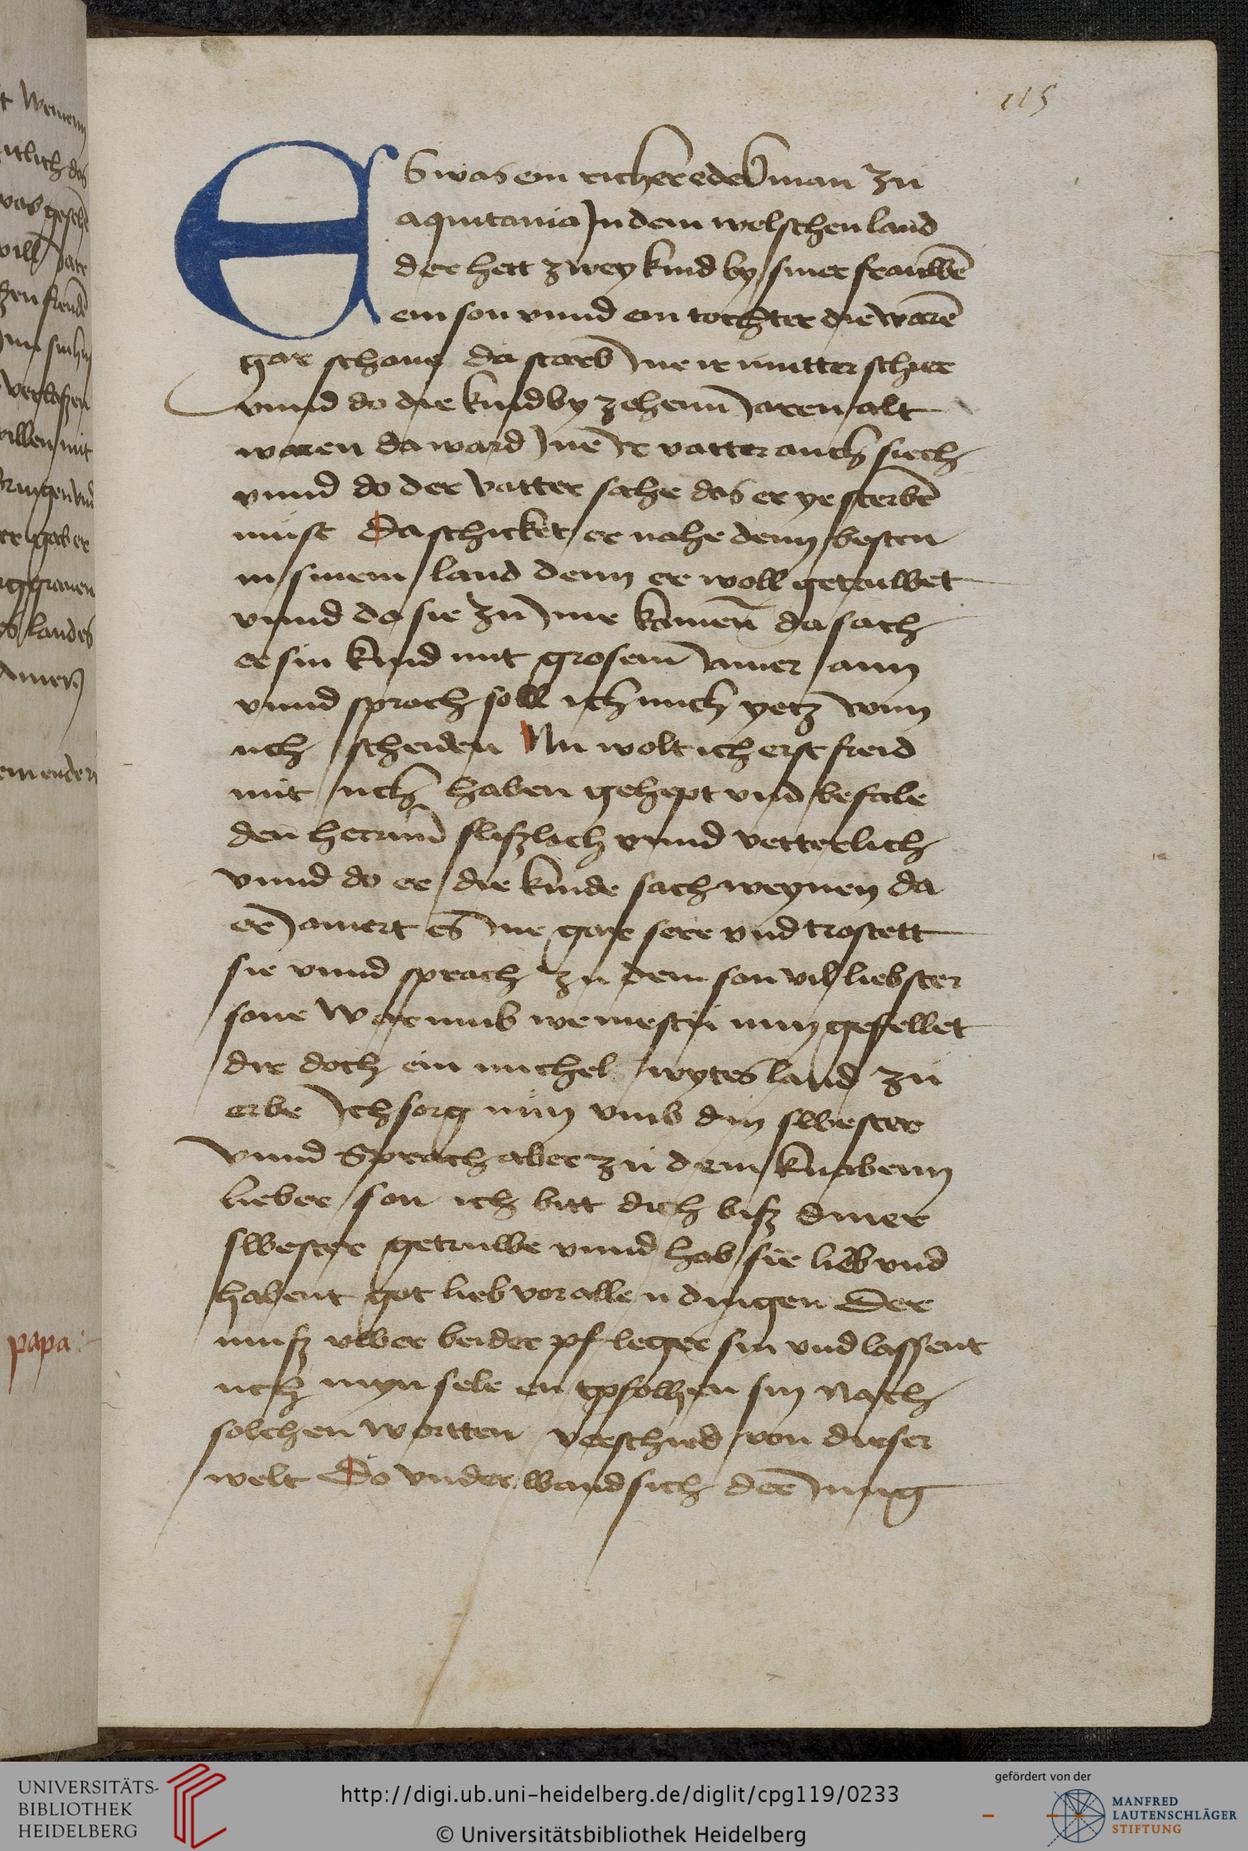 115
ES was ein richer edel man zu
aquitania Jn dem welschen land
der hett zwey kind by siner frauwē
ein son vnnd ein tochtter die warē
gar schone da starb Jne ir mutter schier
vnnd do die kind by zehenn Jaren alt
waren da ward Jnē Jr vatter auch siech
vnnd do der vatter sahe das er ye sterbē
must Da schicket er nahe denn besten
in sinem land denn er woll getruwet
vnnd do sie zu Jme komenn da sach
er sin kind mit grosem Jamer ann
vnnd sprach soll ich mich yetz vonn
uch scheiden Nu wolt ich erst freid
mit uch haben gehept vnd befale
den herrnn flißlich vnnd vetterlich
vnnd do er die kinde sach weynen da
er Jamert es Jne gar sere vnd trostett
sie vnnd sprach zu dem son vil liebster
sone Warumb weinestu nun gefellet
dir doch ein michel wytes land zu
erbe Jch sorg nun vmb din swester
vnnd Sprach aber zu dem knabenn
lieber son ich bitt dich biß diner
swester getruwe vnnd hab sie lieb vnd
habent got lieb vor allen dingen Der
muß uwer beider pfleger sin vnd lassent
uch myn sele enpfolhen sin Nach
solchen wortten verschied von dieser
welt Do vnderwand sich der Jung
papa
UNIVERSITÄTS-
BIBLIOTHEK
HEIDELBERG
http://digi.ub.uni-heidelberg.de/diglit/cpg119/0233
© Universitätsbibliothek Heidelberg
gefördert von der
MANFRED
LAUTENSCHLÄGER
STIFTUNG